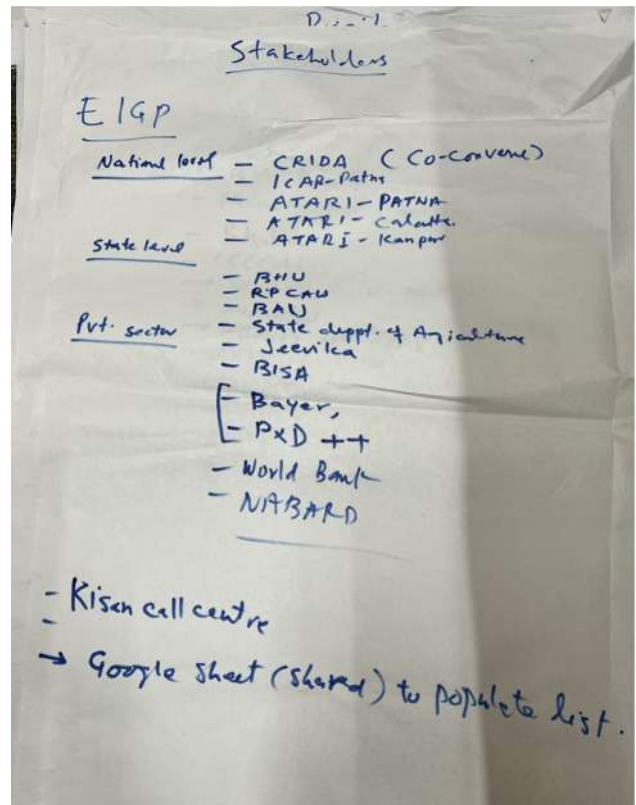 Stakeholders
EIGP
National level - CRIDA (Co-convene)
- ICAR-Patna
- ATARI-PATNA
- ATARI-Calcutta.
- ATARI-Kanpur
State level
- BHU
- RPCAU
- BAU
Pvt. sector - State deppt. of Agriculture
- Jeevika
- BISA
- Bayer,
- PxD ++
- World Bank
- NABARD
- Kisan call centre
-
→ Google Sheet (shared) to populate list.